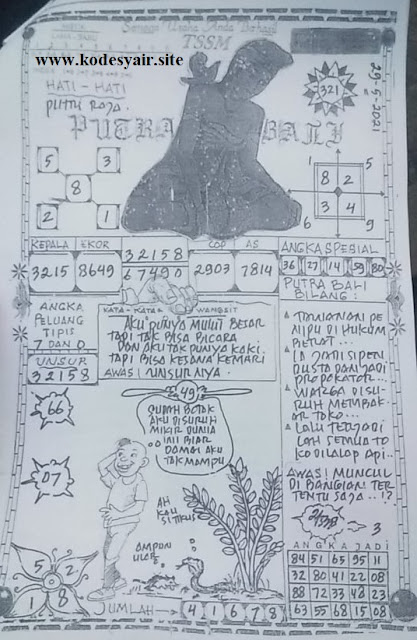 Semoga Usaha Anda Berhasil
TSSM
www.kodesyair.site
HATI - HATI
PUTRI RAJA.
321
29-5-2021
PUTRA BALI
5 3
8
2 1
1 5
8 2
3 4
6 9
KEPALA EKOR
3215 8649
32158
67490
COP AS
2903 7814
ANGKA SPESIAL
36 27 14 59 80
PUTRA BALI
BILANG :
ANGKA
PELUANG
TIPIS
7 DAN 0
UNSUR
32158
KATA - KATA WANGSIT
AKU PUNYA MULUT BESAR
TAPI TAK BISA BICARA
DAN AKU TAK PUNYA KAKI.
TAPI BISA KESANA KEMARI
AWAS! UNSURNYA.
PENIPU DI HUKUM
BERAT...
IA JADI SIPEN
DUSTA DAN JADI
PROPOKATOR...
WARGA DISU-
RUH MEMBAK-
AR TOKO...
LALU TERJADI
LAH SEMUA TO
KO DILALAP API..
AWAS! MUNCUL
DI BANGIAN TER
TENTU SAJA..!?
66
07
49
SUDAH BOTAK
AKU DISURUH
MIKIR DUNIA
INI BIAR
DAMAI AKU
TAK MAMPU
AH
KAU
SI TIKUS
AMPUN
ULAR
3
ANGKA JADI
84 51 65 95 11
32 80 41 22 08
88 72 33 48 23
63 55 68 15 08
5 2
1 8
JUMLAH
4 1 6 7 8